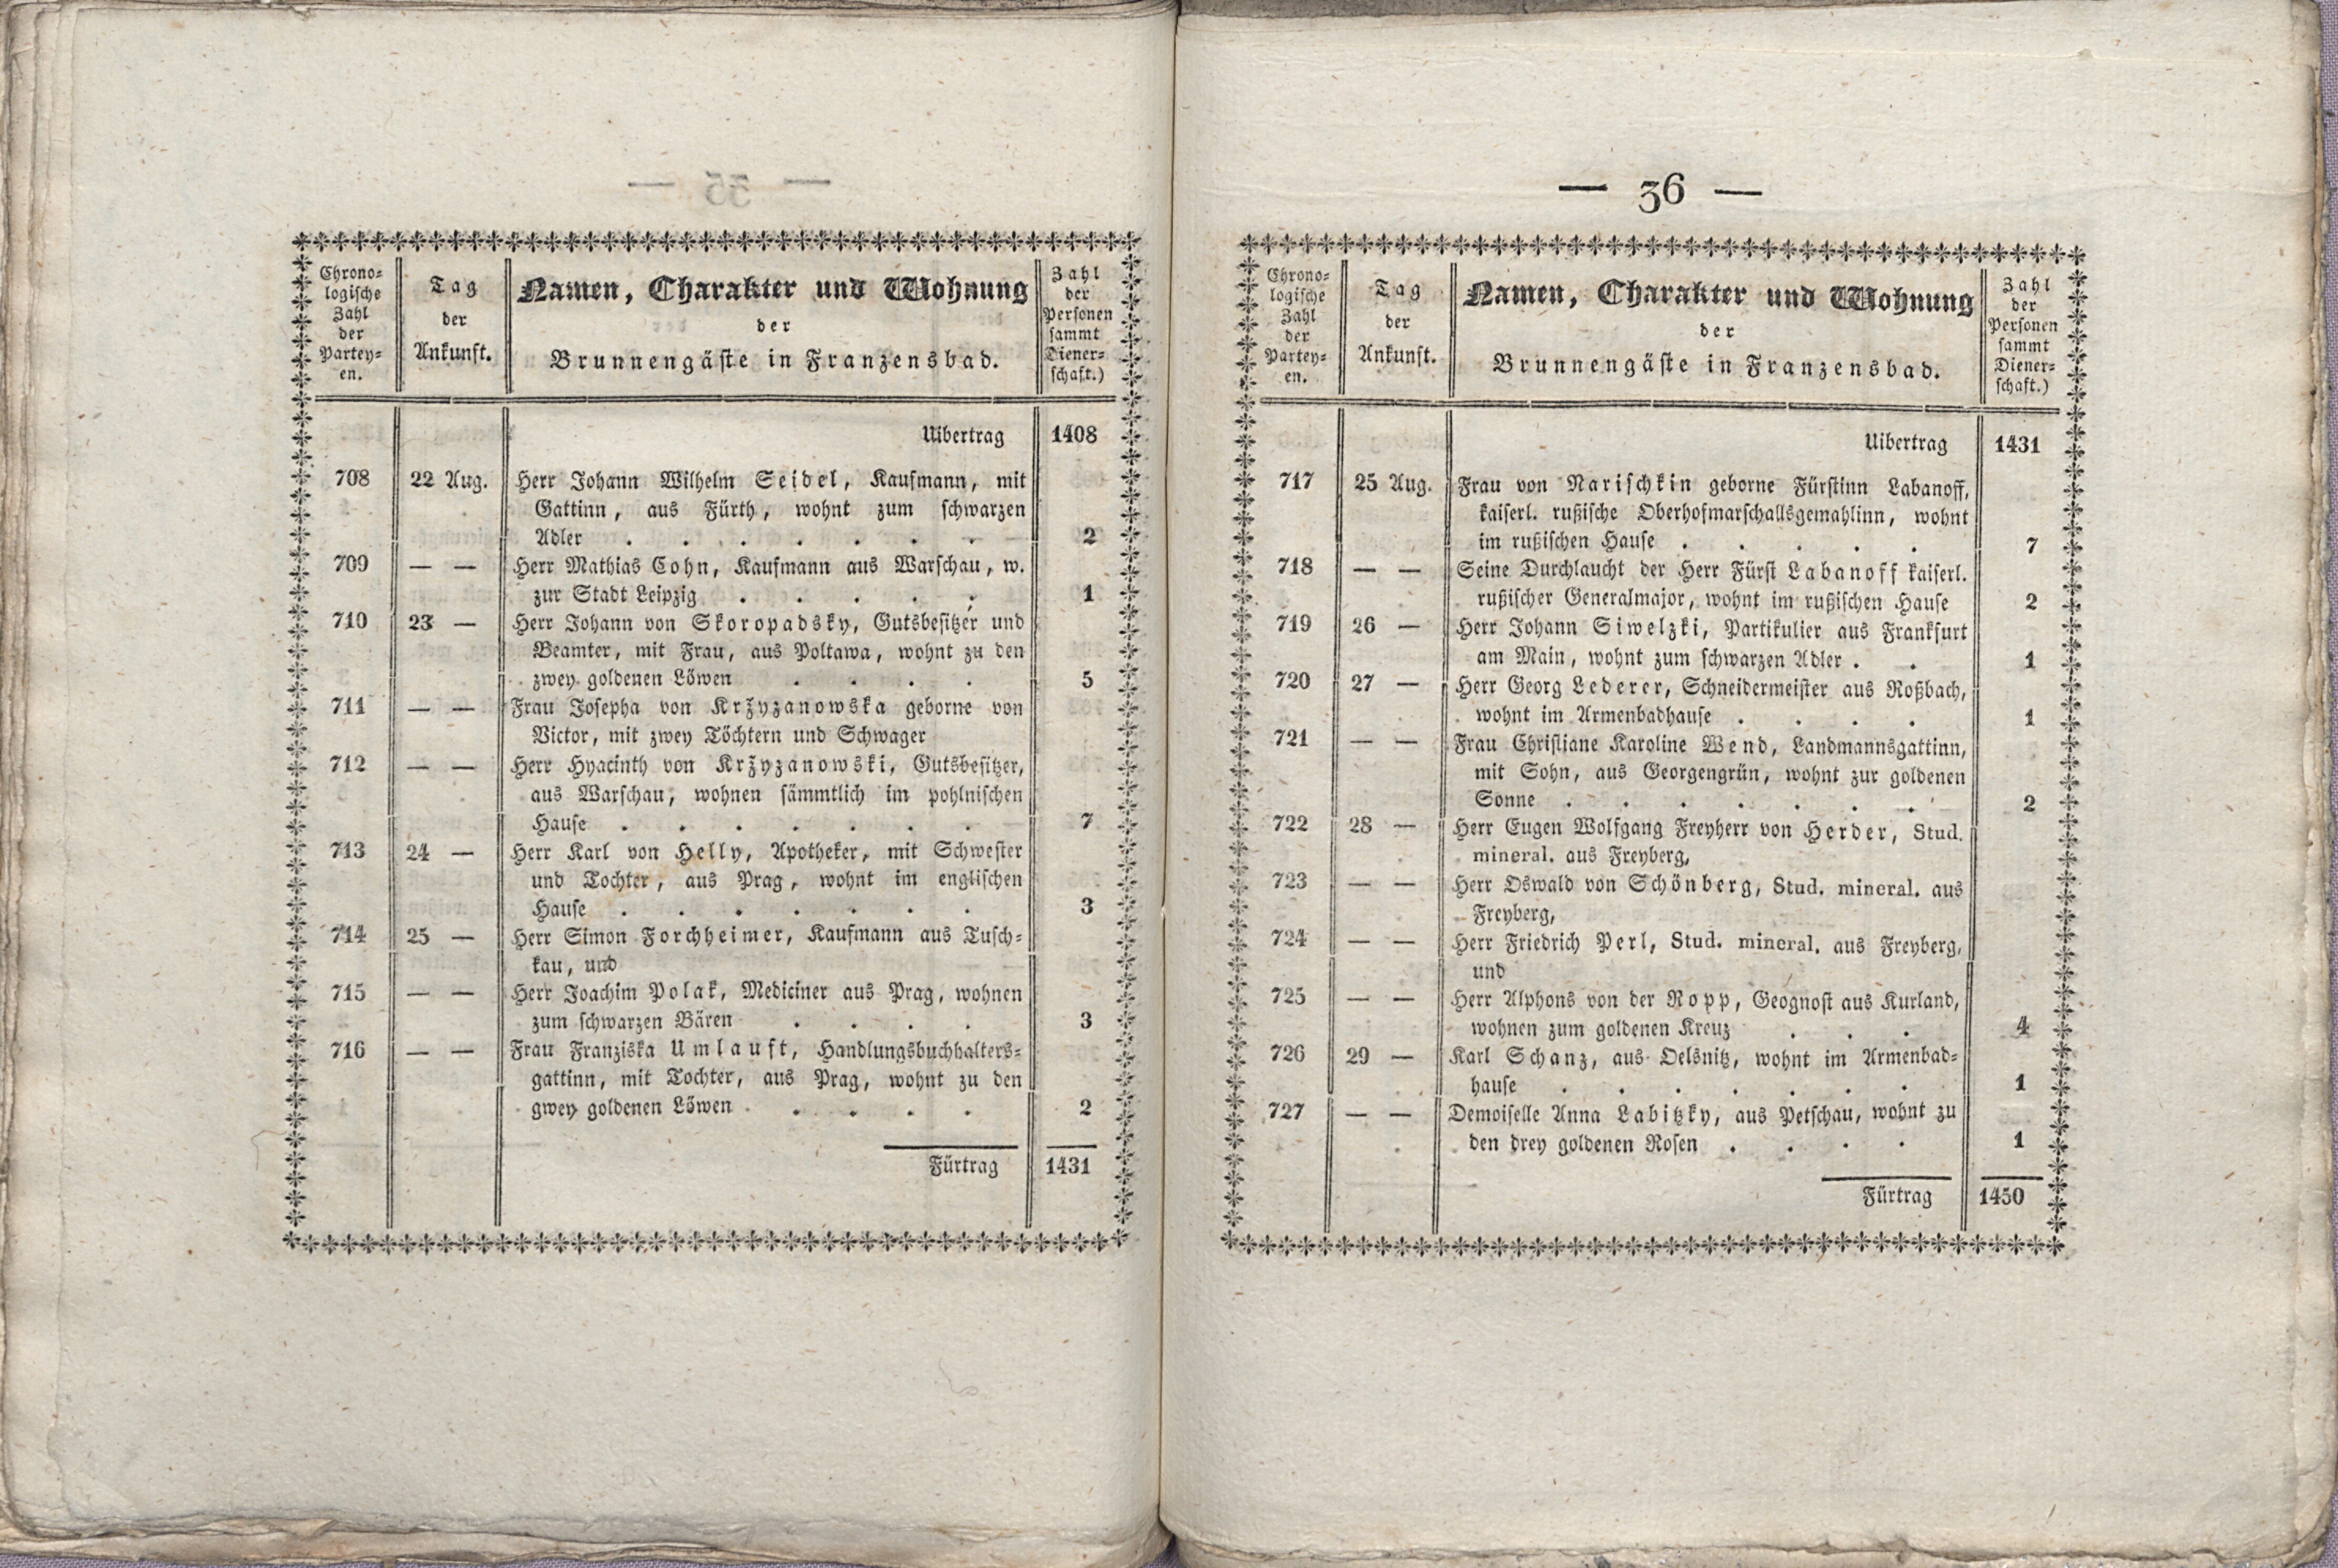 Chrono-
logische
Zahl
der
Partey-
en.
Tag
der
Ankunft.
Namen, Charakter und Wohnung
der
Brunnengäste in Franzensbad.
Zahl
der
Personen
sammt
Diener-
schaft.)
Uibertrag 1408
708 22 Aug. Herr Johann Wilhelm Seidel, Kaufmann, mit
Gattinn, aus Fürth, wohnt zum schwarzen
Adler . . . . . . . 2
709 — — Herr Mathias Cohn, Kaufmann aus Warschau, w.
zur Stadt Leipzig . . . . . 1
710 23 — Herr Johann von Skoropadsky, Gutsbesitzer und
Beamter, mit Frau, aus Poltawa, wohnt zu den
zwey goldenen Löwen . . . . 5
711 — — Frau Josepha von Kržyzanowska geborne von
Victor, mit zwey Töchtern und Schwager
712 — — Herr Hyacinth von Kržyzanowski, Gutsbesitzer,
aus Warschau, wohnen sämmtlich im pohlnischen
Hause . . . . . . . 7
713 24 — Herr Karl von Helly, Apotheker, mit Schwester
und Tochter, aus Prag, wohnt im englischen
Hause . . . . . . . 3
714 25 — Herr Simon Forchheimer, Kaufmann aus Tusch-
kau, und
715 — — Herr Joachim Polak, Mediciner aus Prag, wohnen
zum schwarzen Bären . . . . 3
716 — — Frau Franziska Umlauft, Handlungsbuchhalters-
gattinn, mit Tochter, aus Prag, wohnt zu den
gwey goldenen Löwen . . . . 2
Fürtrag 1431
— 36 —
Chrono-
logische
Zahl
der
Partey-
en.
Tag
der
Ankunft.
Namen, Charakter und Wohnung
der
Brunnengäste in Franzensbad.
Zahl
der
Personen
sammt
Diener-
schaft.)
Uibertrag 1431
717 25 Aug. Frau von Narischkin geborne Fürstinn Labanoff,
kaiserl. rußische Oberhofmarschallsgemahlinn, wohnt
im rußischen Hause . . . . . 7
718 — — Seine Durchlaucht der Herr Fürst Labanoff kaiserl.
rußischer Generalmajor, wohnt im rußischen Hause 2
719 26 — Herr Johann Siwelzki, Partikulier aus Frankfurt
am Main, wohnt zum schwarzen Adler . . 1
720 27 — Herr Georg Lederer, Schneidermeister aus Roßbach,
wohnt im Armenbadhause . . . . 1
721 — — Frau Christiane Karoline Wend, Landmannsgattinn,
mit Sohn, aus Georgengrün, wohnt zur goldenen
Sonne . . . . . . . 2
722 28 — Herr Eugen Wolfgang Freyherr von Herder, Stud.
mineral. aus Freyberg,
723 — — Herr Oswald von Schönberg, Stud. mineral. aus
Freyberg,
724 — — Herr Friedrich Perl, Stud. mineral. aus Freyberg,
und
725 — — Herr Alphons von der Ropp, Geognost aus Kurland,
wohnen zum goldenen Kreuz . . . 4
726 29 — Karl Schanz, aus Oelsnitz, wohnt im Armenbad-
hause . . . . . . . 1
727 — — Demoiselle Anna Labitzky, aus Petschau, wohnt zu
den drey goldenen Rosen . . . . 1
Fürtrag 1450